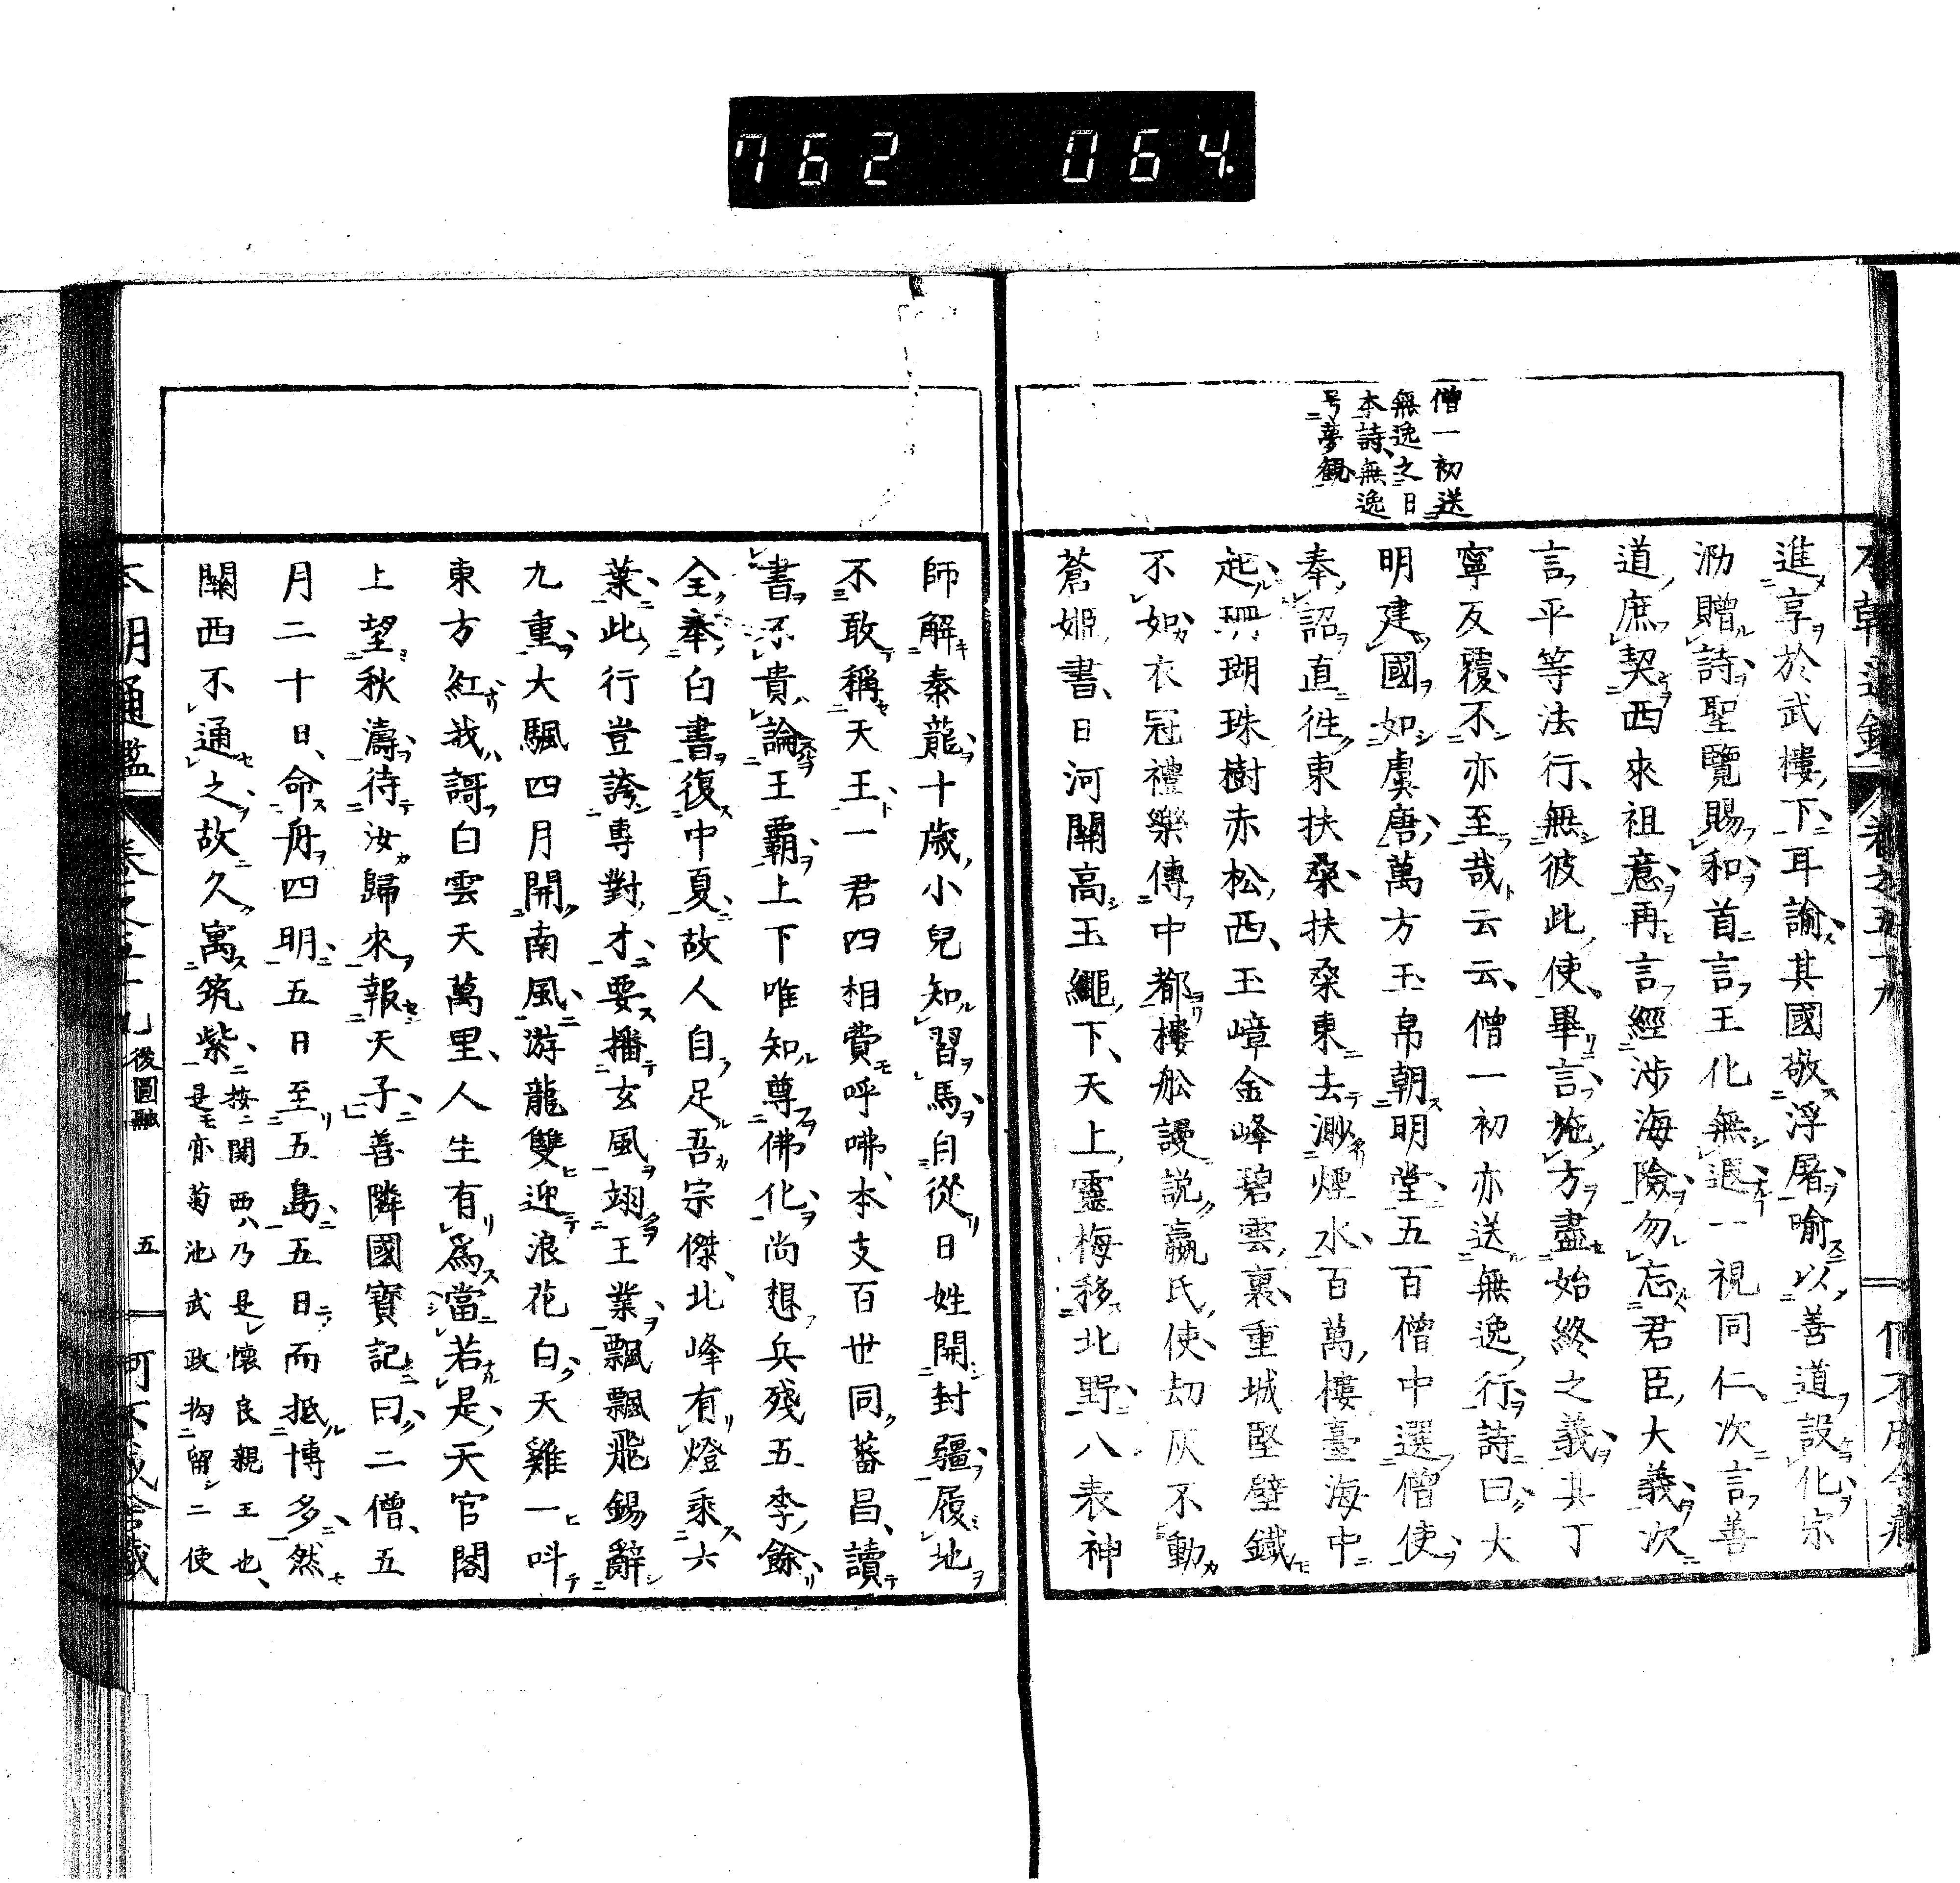 762 064
僧一初送
無逸之日
本詩無逸
号夢観
進享於武樓下耳諭其國敬浮屠喻以善道設化宗
泐贈詩聖覽賜和首言王化無遐一視同仁次言善
道庶契西來祖意再言經涉海險勿忘君臣大義次
言平等法行無彼此使畢言施方盡始終之義其丁
寧反覆不亦至哉云云僧一初亦送無逸行詩曰大
明建國如虞唐萬方玉帛朝明堂五百僧中選僧使
奉詔直徃東扶桑扶桑東去渺煙水百萬樓臺海中
起珊瑚珠樹赤松西玉嶂金峰碧雲裏重城堅壁鐵
不如衣冠禮樂傳中都樓舩謾説嬴氏使刧灰不動
蒼姬書日河關高玉繩下天上靈梅移北野八表神
師解泰龍十歲小兒知習馬自從日姓開封疆履地
不敢稱天王一君四相費呼咈本支百世同蕃昌讀
書不貴論王霸上下唯知尊佛化尚想兵殘五季餘
全奉白書復中夏故人自足吾宗傑北峰有燈乘六
葉此行豈誇專對才要播玄風翊王業飄飄飛錫辭
九重大颿四月開南風游龍雙迎浪花白天雞一呌
東方紅我謌白雲天萬里人生有為當若是天官閣
上望秋濤待汝歸來報天子善隣國寶記曰二僧五
月二十日命舟四明五日至五島五日而抵博多然
關西不通之故久寓筑紫按関西乃是懷良親王也
是亦菊池武政拘留二使
本朝通鑑 卷之五十九 後圓融 五